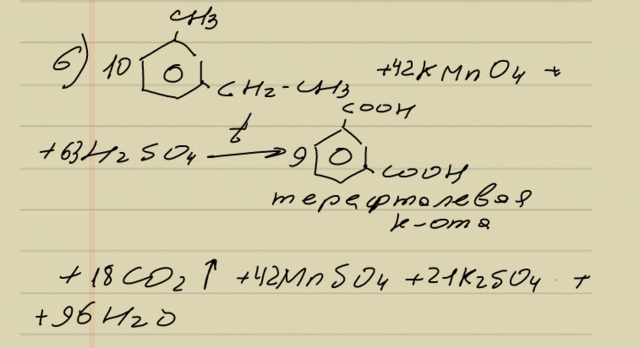 CH3
б) 10 CH2-CH3 +42KMnO4 +
COOH
+63H2SO4 t 9 COOH
терефталевая
к-ота
+18CO2↑ +42MnSO4 +21K2SO4 +
+96H2O